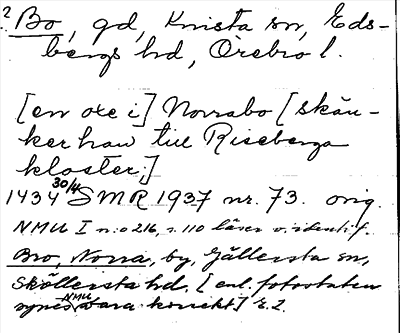 ? Bo, gd, Knista sn, Eds-
bergs hd, Örebro l.
[en oxe i] Norrabo [skän-
ker han till Riseberga
kloster.]
1434 30/4 SMR 1937 nr. 73. orig.
NMU I n:o 216, s. 110 läser o. identif.
Bro, Norra, by, Gällersta sn,
Sköllersta hd. [enl. fotostaten
synes NMU vara korrekt] E.L.